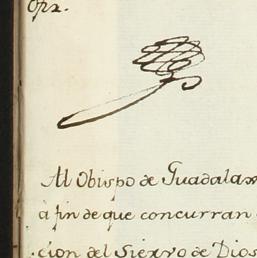 Ofiz.
Al Obispo de Guadalax
à fin de que concurran
cion del Sieruo de Dios